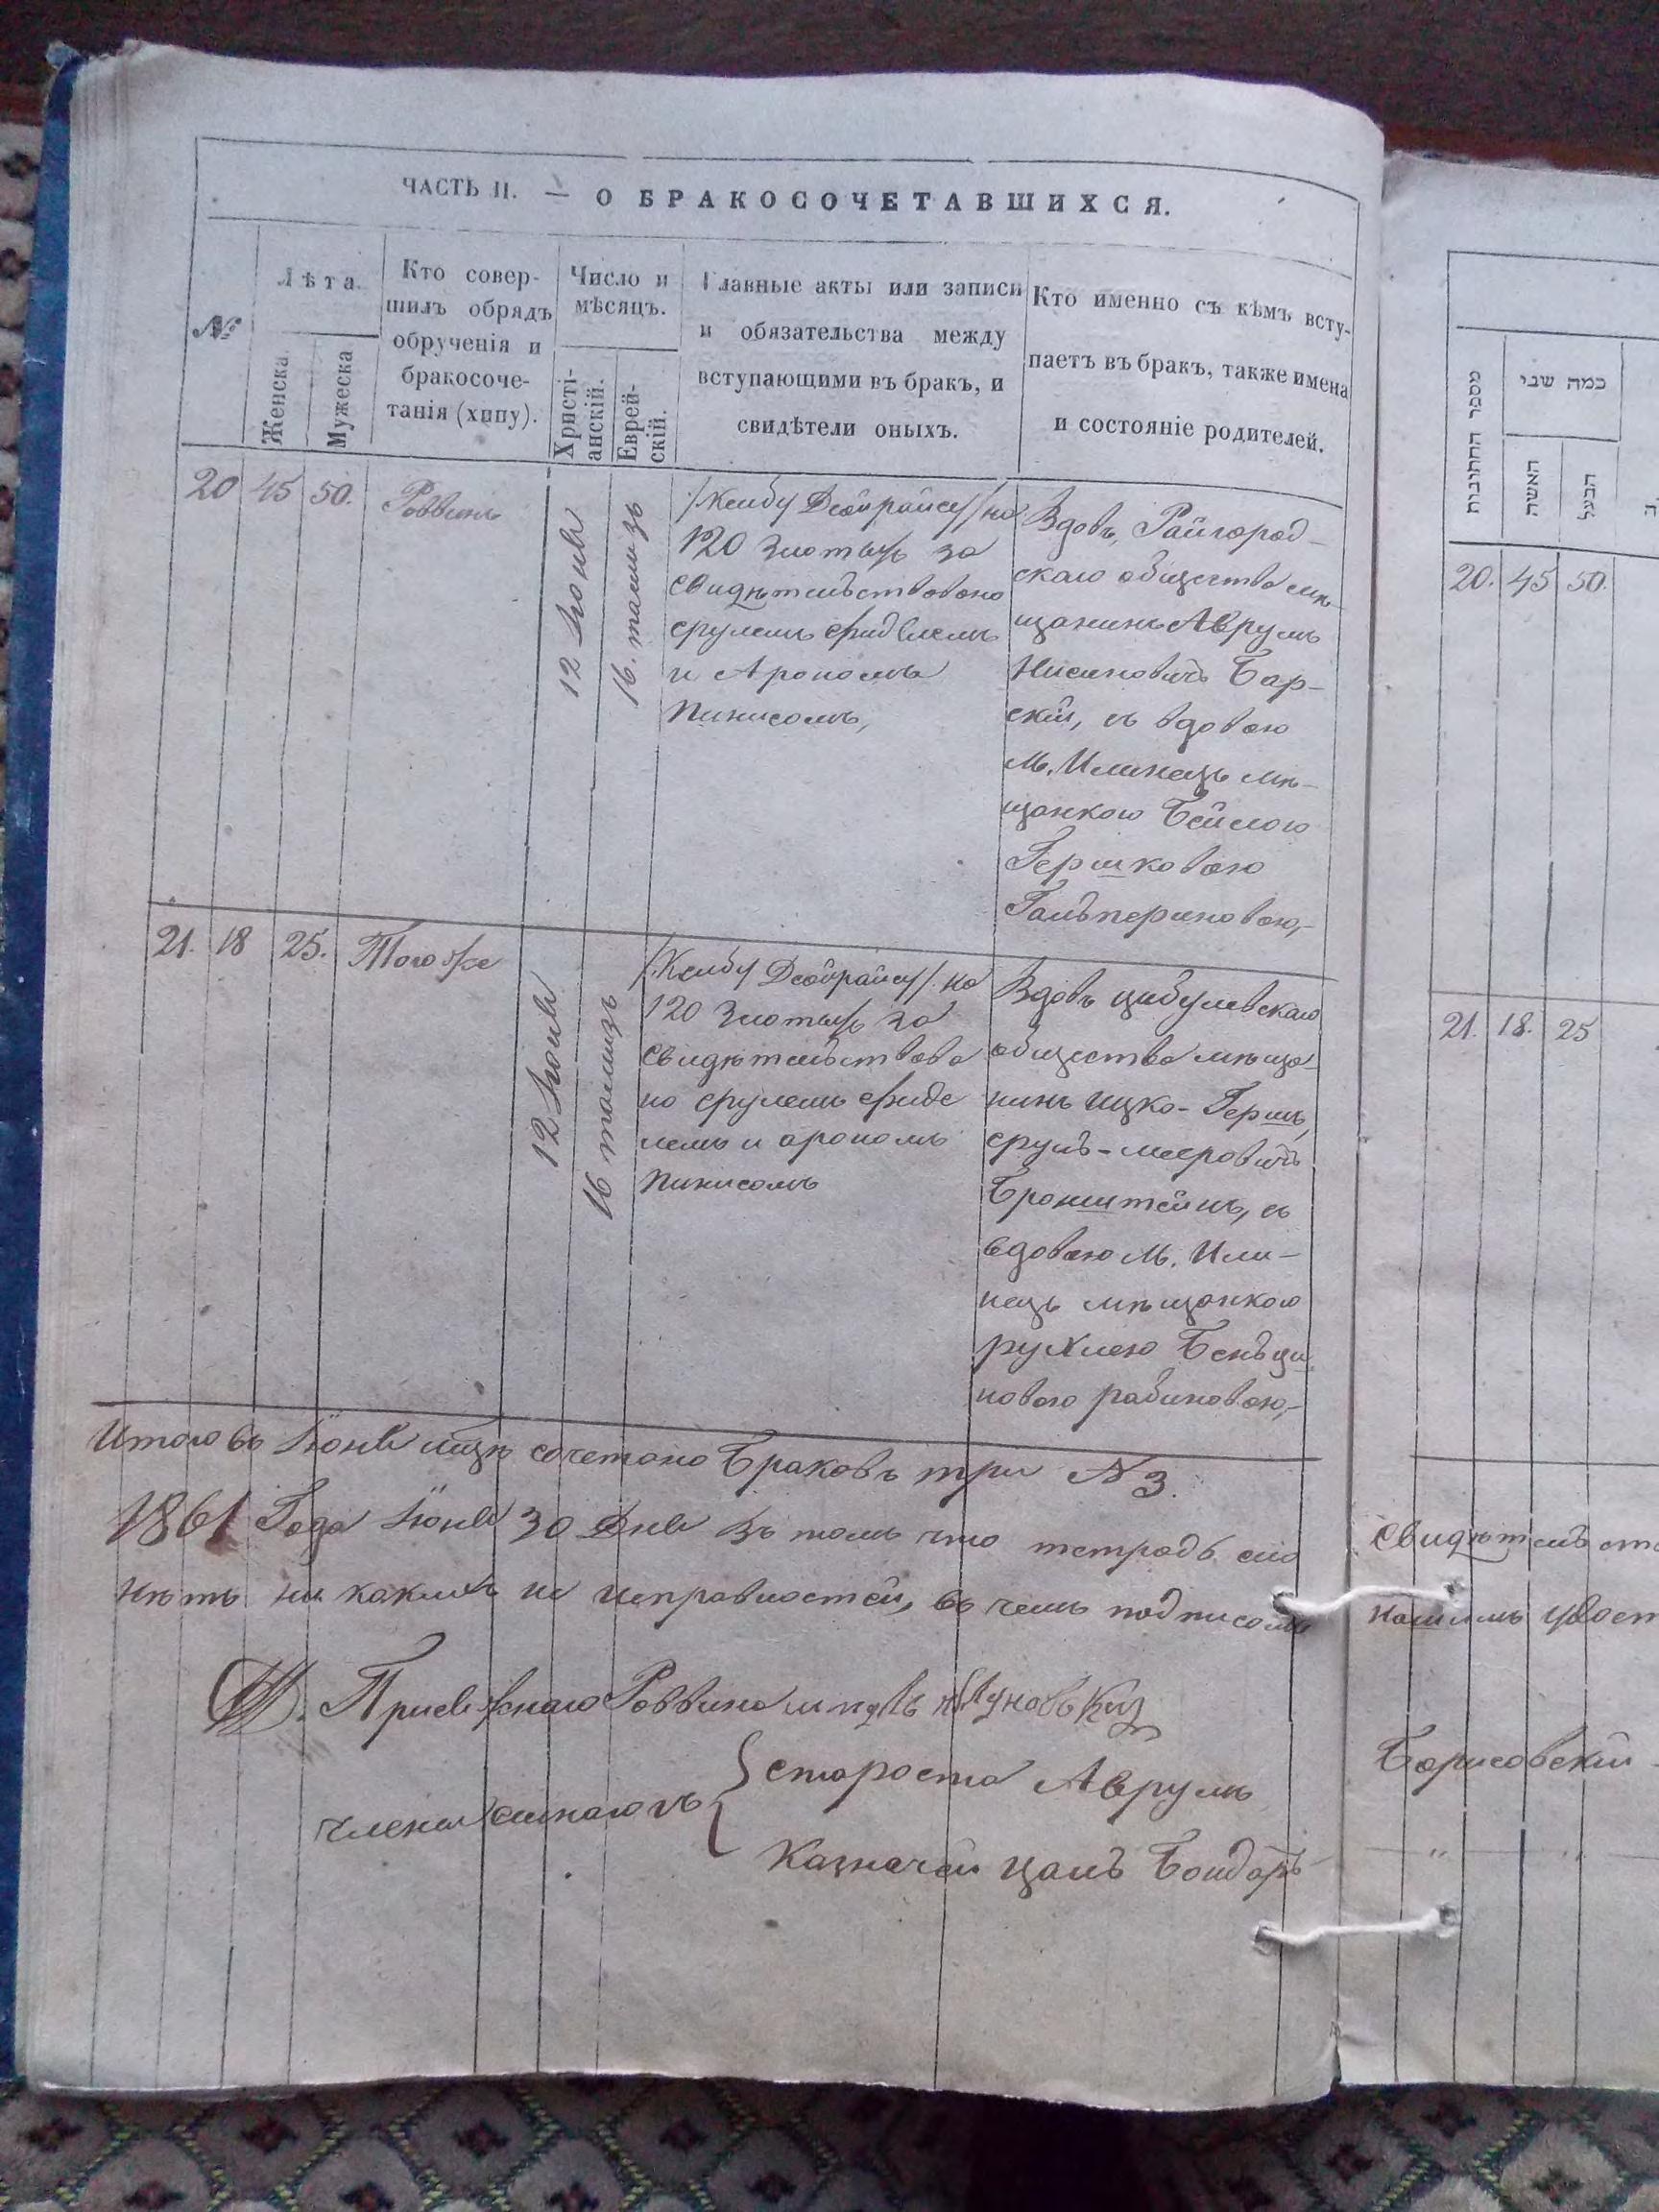 ЧАСТЬ II. — О БРАКОСОЧЕТАВШИХСЯ.
№
Лѣта.
Женска
Мужеска
Кто совер-
шилъ обрядъ
обрученія и
бракосоче-
танія (хипу).
Число и
мѣсяцъ.
Христі-
анскій.
Еврей-
скій.
Главные акты или записи
и обязательства между
вступающими въ бракъ, и
свидѣтели оныхъ.
Кто именно съ кѣмъ всту-
паетъ въ бракъ, также имена
и состояніе родителей.
20
45
50.
Раввинъ
12 Іюня
16. тамизъ
/Ксибу Деойрайсу/ на
120 злотыхъ за
свидѣтельствовано
срулемъ фидлемъ
и Арономъ
Пинисомъ,
Вдовъ, Райгород-
скаго общества мѣ-
щанинъ Аврумъ
Нисиновичъ Бар-
скій, съ вдовою
М. Илинецъ мѣ-
щанкою Бейлою
Гершковою
Гальпериновою,-
21.
18
25.
Того же
12 Іюня
16 тамизъ
/Ксибу Деойрайсу/ на
120 злотыхъ за
свидѣтельствова
но срулемъ фиде
лемъ и арономъ
Пинисомъ
Вдовъ цибулевскаго
общества мѣща-
нинъ Ицко-Гершъ,
сруль-мееровичъ
Бронштейнъ, съ
вдовою М. Или-
нецъ мѣщанкою
рухлею Беньци
новою рабиновою,-
Итого въ Іюня мцѣ сочетано Браковъ три № 3.
1861 Года Іюня 30 Дня въ томъ что тетрадь сіо
нѣтъ ни какихъ не исправностей, въ чемъ подписомъ
Д. Присяжнаго Раввина
члены синагогъ
староста Аврумъ
Казначей цаль Бондарь
מספר החתונות
כמה שני
האשה
הבעל
20.
45
50.
21.
18.
25
Свидѣтельст
нашимъ удост
Борисовскій